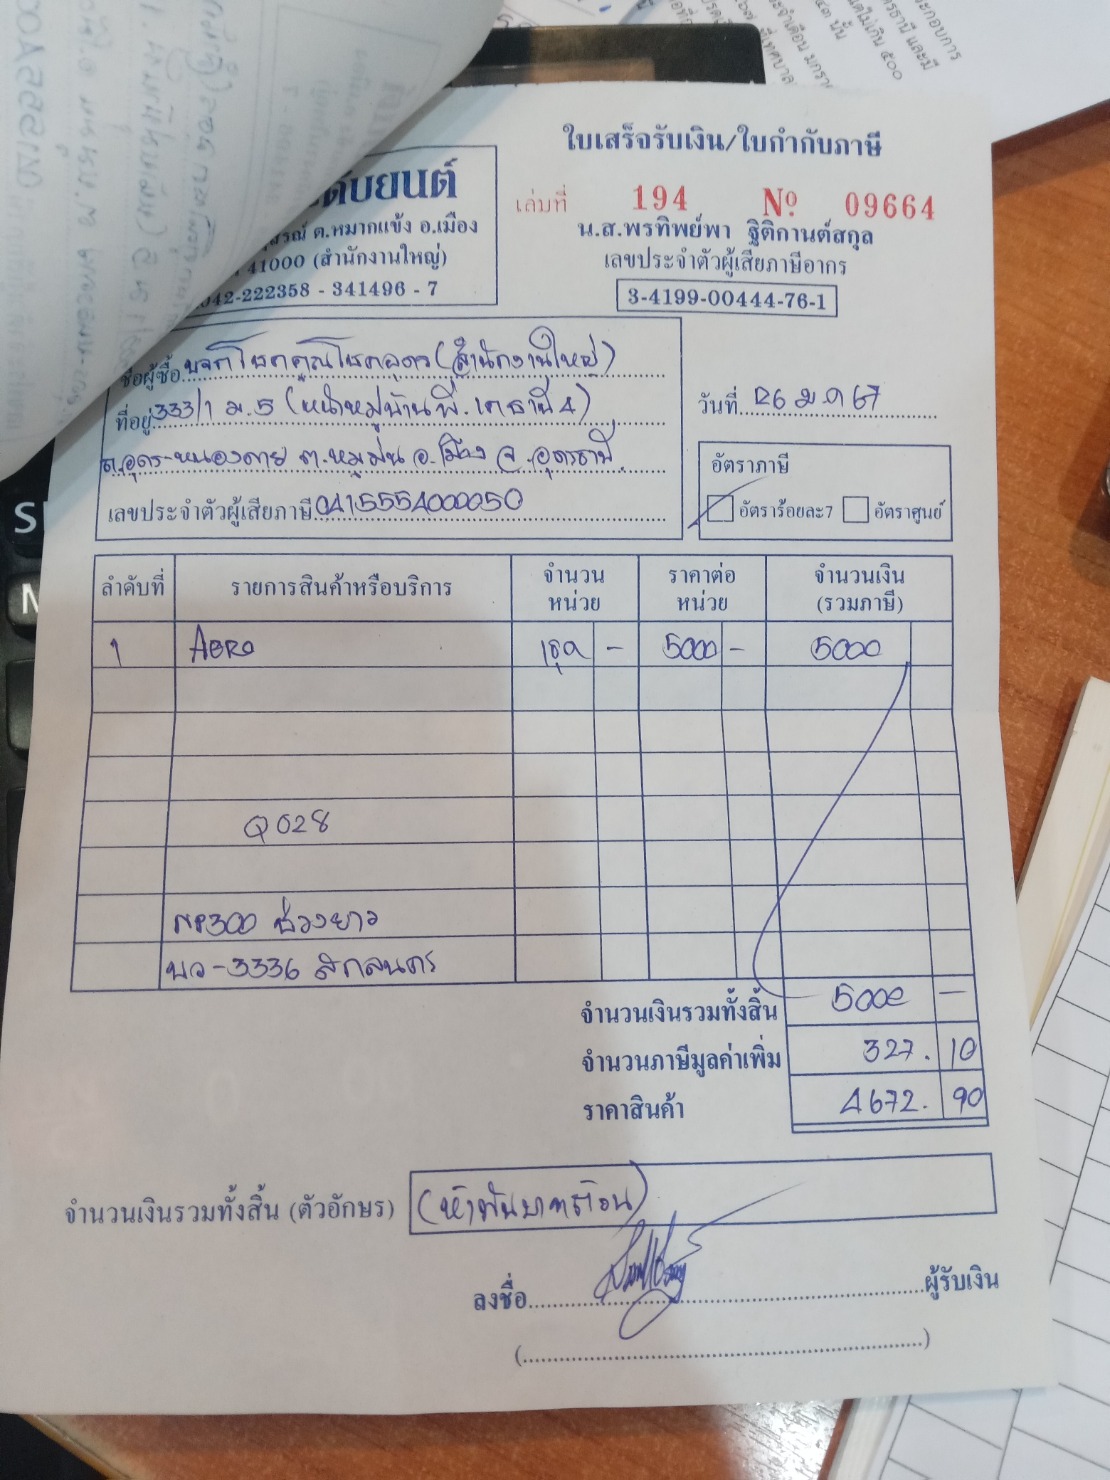 ใบเสร็จรับเงิน/ใบกำกับภาษี
ดับยนต์
เล่มที่ 194 Nº 09664
ต.หมากแข้ง อ.เมือง
น.ส.พรทิพย์พา ฐิติกานต์สกุล
41000 (สำนักงานใหญ่)
เลขประจำตัวผู้เสียภาษีอากร
042-222358 - 341496 - 7
3-4199-00444-76-1
ชื่อผู้ซื้อ บจก โชคคูณโชคอุดร (สำนักงานใหญ่)
วันที่ 26 ม.ค 67
ที่อยู่ 333/1 ม.5 (หน้าหมู่บ้านพี.เคธานี 4)
ถ.อุดร-หนองตาย ต.หมูม่น อ.เมือง จ.อุดรธานี
อัตราภาษี
เลขประจำตัวผู้เสียภาษี 0415554000050
อัตราร้อยละ7 อัตราศูนย์
ลำดับที่ รายการสินค้าหรือบริการ จำนวนหน่วย ราคาต่อหน่วย จำนวนเงิน (รวมภาษี)
1 AERO 1ชุด - 5000 - 5000
Q028
NP300 ช่วงยาว
บว-3336 สกลนคร
จำนวนเงินรวมทั้งสิ้น 5000 —
จำนวนภาษีมูลค่าเพิ่ม 327. 10
ราคาสินค้า 4672. 90
จำนวนเงินรวมทั้งสิ้น (ตัวอักษร) (ห้าพันบาทถ้วน)
ลงชื่อ ผู้รับเงิน